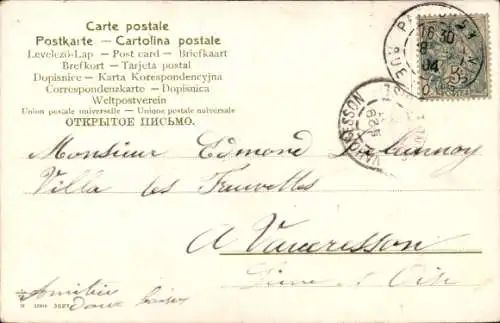 Carte postale
Postkarte — Cartolina postale
Levelező-Lap — Post card — Briefkaart
Brefkort — Tarjeta postal
Dopisnice — Karta Korespondencyjna
Correspondenzkarte — Dopisnica
Weltpostverein
Union postale universelle — Unione postale universale
ОТКРЫТОЕ ПИСЬМО.
16 30
04
VAUCRESSON
Monsieur Edmond
Villa les
A Vaucresson
Seine et Oise
Amitiés
doux baisers